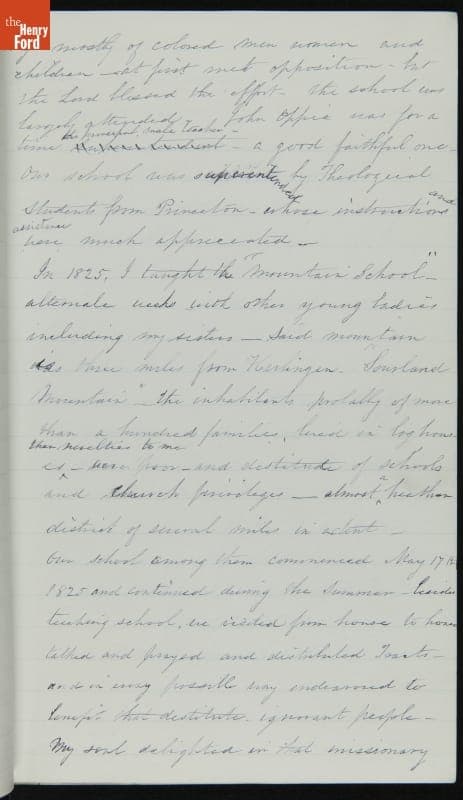 the
Henry
Ford
mostly of colored men women and
children - at first met opposition - but
the Lord blessed the effort - the school was
largely attended & John Oppie was for a
the principal, male teacher -
time - a good faithful one -
Our school was superintended by Theological
and
Students from Princeton - whose instructions
assistance
were much appreciated -
In 1825, I taught the "Mountain School" -
alternate weeks with other young ladies
including my sisters - Said mountain
was three miles from Harlingen - Sourland
Mountain" - the inhabitants probably of more
than a hundred families, lived in log hous-
then novelties to me
es - were poor - and destitute of schools
and church privileges - almost "heathen
district of several miles in extent -
Our school among them commenced May 17th
1825 and continued during the Summer - beside
teaching school, we visited from house to house
talked and prayed and distributed Tracts -
and in every possible way endeavored to
benefit that destitute ignorant people -
My soul delighted in that missionary